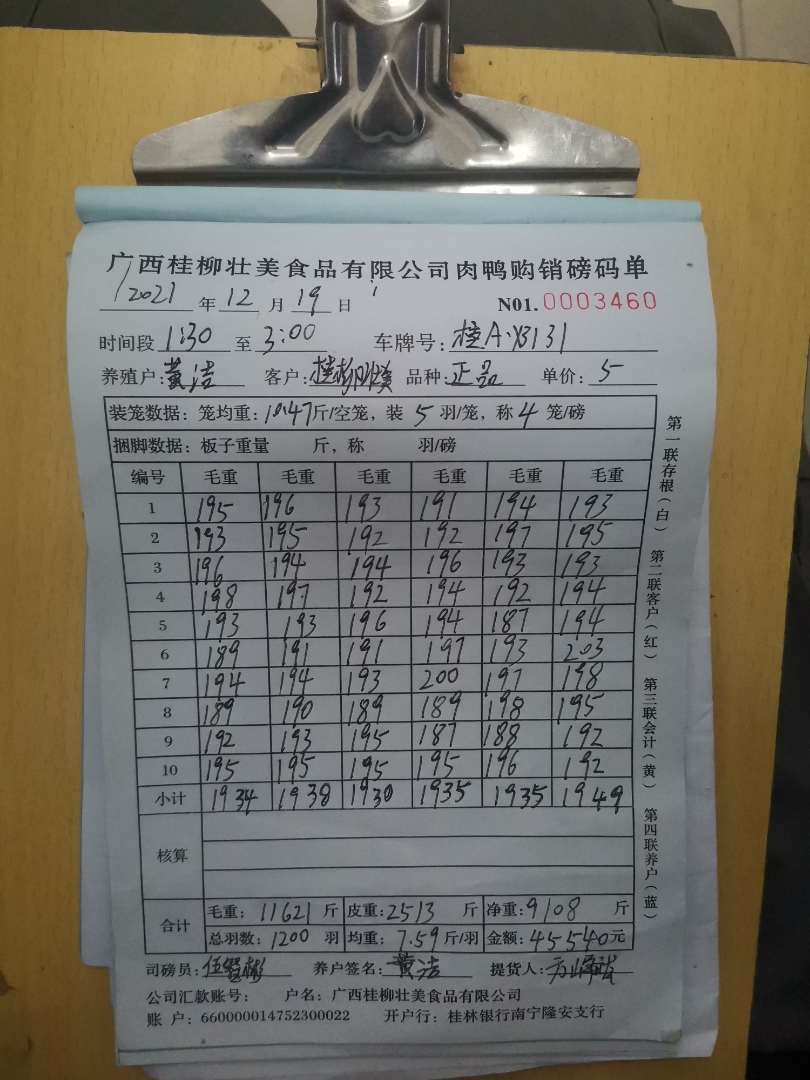 广西桂柳壮美食品有限公司肉鸭购销磅码单
2021 年 12 月 19 日 N01. 0003460
时间段 1:30 至 3:00 车牌号: 桂A·Y3131
养殖户: 黄洁 客户: 桂柳 品种: 正品 单价: 5
装笼数据: 笼均重: 10.47 斤/空笼, 装 5 羽/笼, 称 4 笼/磅
捆脚数据: 板子重量 斤, 称 羽/磅
编号 毛重 毛重 毛重 毛重 毛重 毛重
1 195 196 193 191 194 193
2 193 195 192 192 197 195
3 196 194 194 196 193 193
4 198 197 192 194 192 194
5 193 193 196 194 187 194
6 189 191 191 197 193 203
7 194 194 193 200 197 198
8 189 190 189 189 198 195
9 192 193 195 187 188 192
10 195 195 195 195 196 192
小计 1934 1938 1930 1935 1935 1949
核算
合计 毛重: 11621 斤 皮重: 2513 斤 净重: 9108 斤
总羽数: 1200 羽 均重: 7.59 斤/羽 金额: 45540 元
司磅员: 养户签名: 黄洁 提货人:
公司汇款账号: 户名: 广西桂柳壮美食品有限公司
账 户: 660000014752300022 开户行: 桂林银行南宁隆安支行
第一联存根(白) 第二联客户(红) 第三联会计(黄) 第四联养户(蓝)